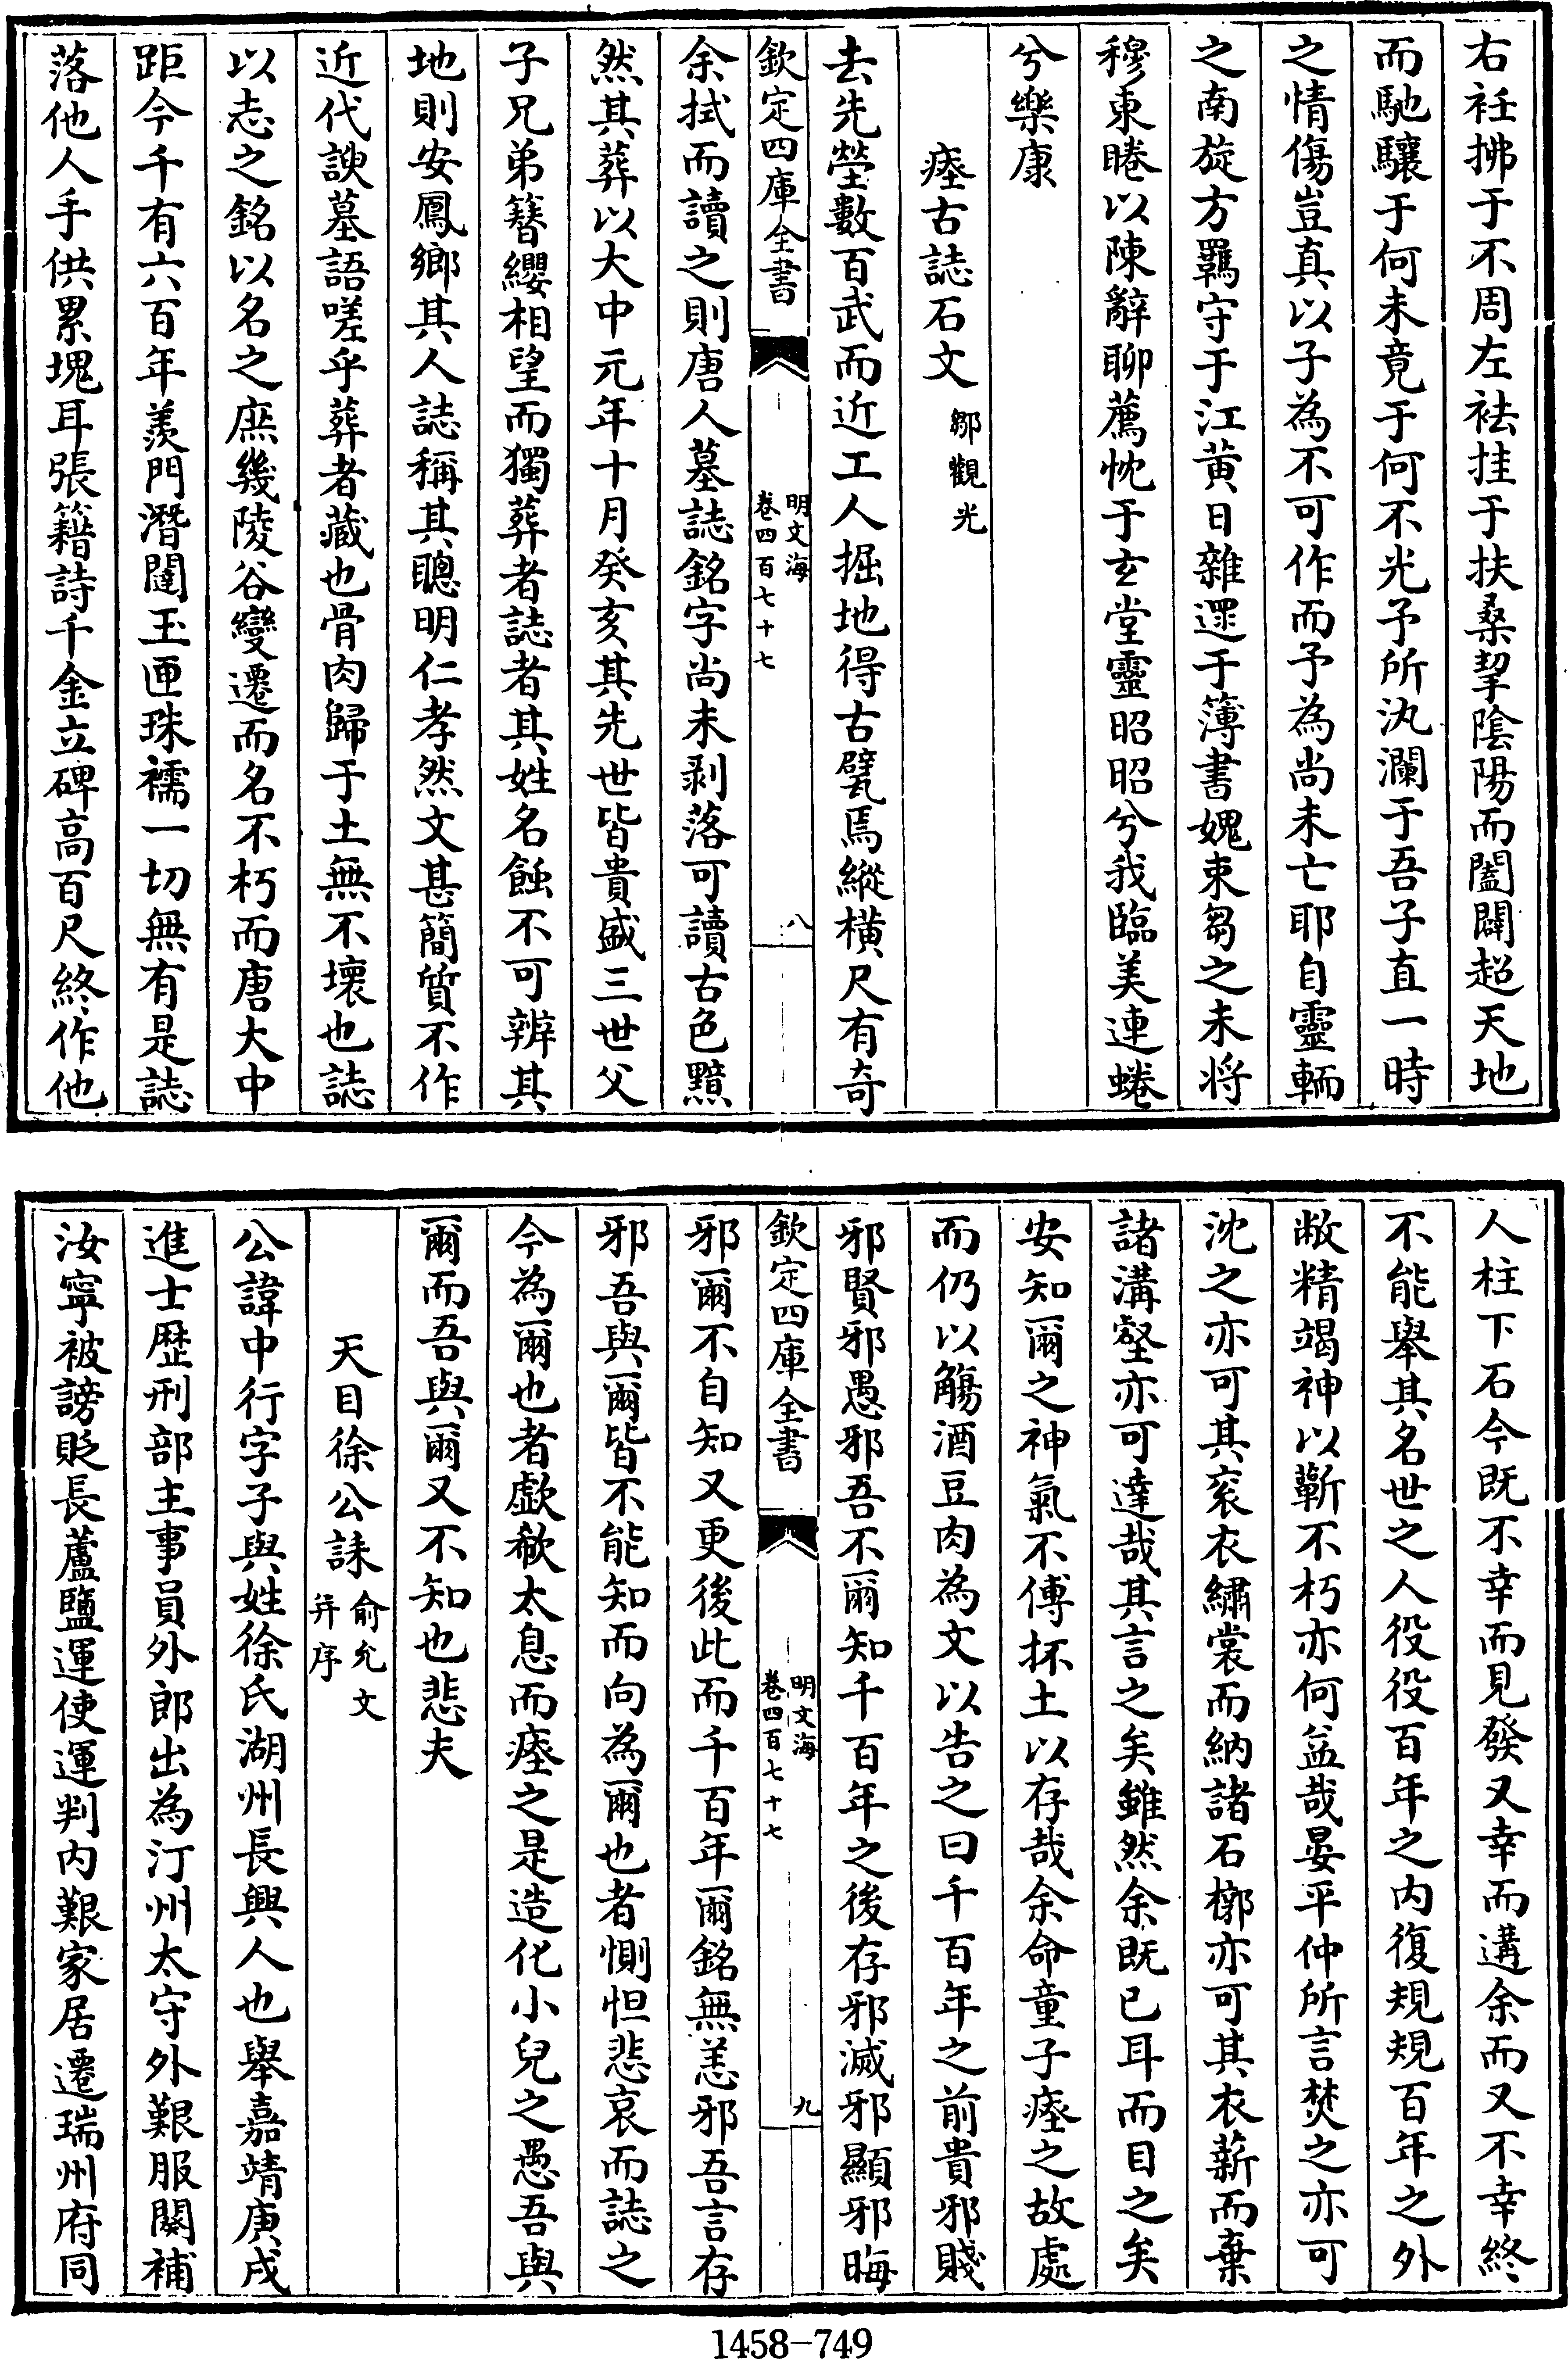 右衽拂于不周左袪挂于扶桑挈陰陽而闔闢超天地
而馳驤于何未竟于何不光予所汍瀾于吾子直一時
之情傷豈真以子為不可作而予為尚未亡耶自靈輀
之南旋方羈守于江黄日雜遝于簿書媿束芻之未將
穆東睠以陳辭聊薦忱于玄堂靈昭昭兮我臨美連蜷
兮樂康
瘞古誌石文 鄒觀光
去先塋數百武而近工人掘地得古甓焉縱橫尺有奇
欽定四庫全書 明文海 卷四百七十七 八
余拭而讀之則唐人墓誌銘字尚未剥落可讀古色黯
然其葬以大中元年十月癸亥其先世皆貴盛三世父
子兄弟簪纓相望而獨葬者誌者其姓名蝕不可辨其
地則安鳳鄉其人誌稱其聰明仁孝然文甚簡質不作
近代諛墓語嗟乎葬者藏也骨肉歸于土無不壞也誌
以志之銘以名之庶幾陵谷變遷而名不朽而唐大中
距今千有六百年羨門潛闥玉匣珠襦一切無有是誌
落他人手供累塊耳張籍詩千金立碑高百尺終作他
人柱下石今既不幸而見發又幸而遘余而又不幸終
不能舉其名世之人役役百年之内復規規百年之外
敝精竭神以蘄不朽亦何益哉晏平仲所言焚之亦可
沈之亦可其衮衣繡裳而納諸石槨亦可其衣薪而棄
諸溝壑亦可達哉其言之矣雖然余既已耳而目之矣
安知爾之神氣不傅抔土以存哉余命童子瘞之故處
而仍以觴酒豆肉為文以告之曰千百年之前貴邪賤
邪賢邪愚邪吾不爾知千百年之後存邪滅邪顯邪晦
欽定四庫全書 明文海 卷四百七十七 九
邪爾不自知又更後此而千百年爾銘無恙邪吾言存
邪吾與爾皆不能知而向為爾也者惻怛悲哀而誌之
今為爾也者歔欷太息而瘞之是造化小兒之愚吾與
爾而吾與爾又不知也悲夫
天目徐公誄 俞允文 并序
公諱中行字子與姓徐氏湖州長興人也舉嘉靖庚戌
進士歴刑部主事員外郎出為汀州太守外艱服闋補
汝寧被謗貶長蘆鹽運使運判内艱家居遷瑞州府同
1458-749